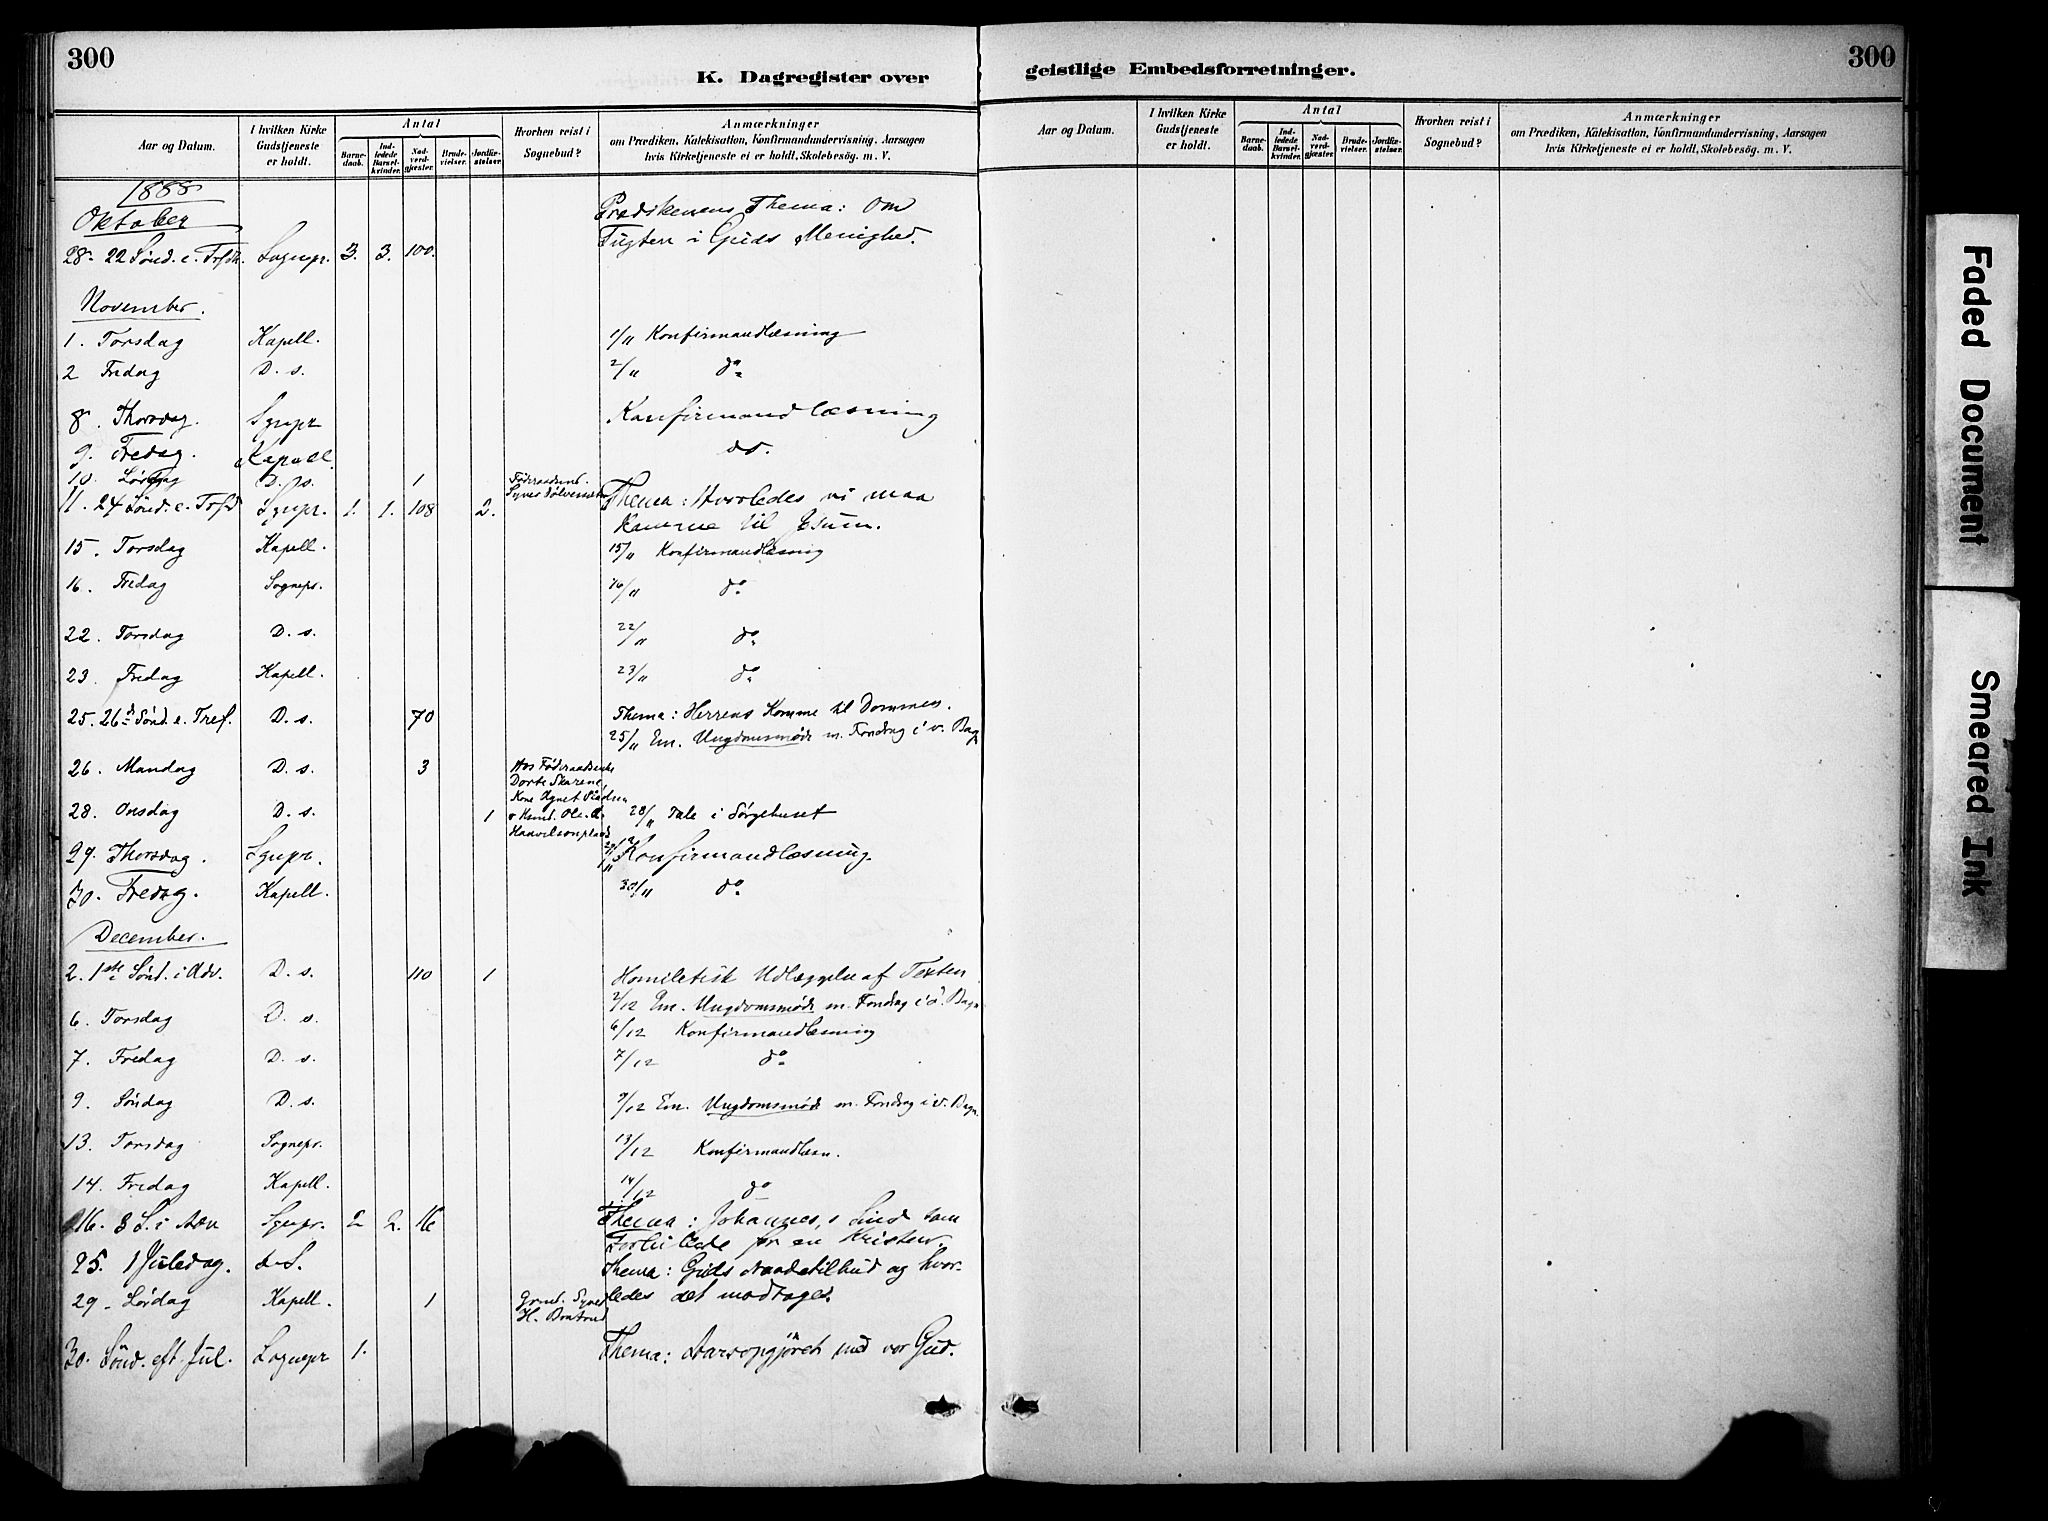 300
K. Dagregister over
Aar og Datum.
I hvilken Kirke Gudstjeneste er holdt.
Antal
Barne-daab.
Ind-ledede Barsel-kvinder.
Nad-verd-gjæster.
Brude-vielser.
Jordfæ-stelser.
Hvorhen reist i Sognebud?
Anmærkninger
om Prædiken, Katekisation, Konfirmandundervisning, Aarsagen
hvis Kirketjeneste ei er holdt, Skolebesøg. m. V.
1888
Oktober
Prædikenens Thema: Om
28. 22 Sønd. e. Trfdh. Sognepr. 3. 3. 100. Tugten i Guds Menighed.
November.
1. Torsdag Kapell. 1/11 Konfirmandlæsning
2 Fredag D. s. 2/11 do
8. Thorsdag. Sgnpr Konfirmandlæsning
9. Fredag. Kapell. do.
10. Lørdag D. s. 1
11. 24 Sønd. e. Trfd Sgnpr. 1. 1. 108 2. Thema: Hvorledes vi maa
Komme til Jesum.
15. Torsdag Kapell. 15/11 Konfirmandlæsning
16. Fredag Sognepr. 16/11 do
22. Torsdag D. s. 22/11 do
23. Fredag Kapell. 23/11 do
25. 26de Sønd. e. Tref. D. s. 70 Thema: Herrens Komme til Dommen.
25/11 Em. Ungdomsmøde m. Foredrag i v. Bagn
26. Mandag D. s. 3 Hos Føderaadsenke
Dorte Skarene
28. Onsdag D. s. 1 28/11 Tale i Sørgehuset
29. Thorsdag. Sgnpr. 29/11 Konfirmandlæsning.
30. Fredag. Kapell. 30/11 do
December.
2. 1ste Sønd. i Adv. D. s. 110 1 Homiletisk Udlæggelse af Texten
2/12 Em. Ungdomsmøde m. Foredrag i ø. Bagn
6. Torsdag D. s. 6/12 Konfirmandlæsning
7. Fredag D. s. 7/12 do
9. Søndag D. s. 9/12 Em. Ungdomsmøde m. Foredrag i v. Bagn.
13. Torsdag Sognepr. 13/12 Konfirmandlæsn.
14. Fredag Kapell. 14/12 do
16. 3 S. i Adv Sgnpr. 2 2. 16 Thema: Johannes, s Sind som
Forbillede for en Kristen.
25. 1 Juledag. d. S. Thema: Guds Naadetilbud og hvor-
29. Lørdag Kapell. 1 ledes det modtages.
30. Sønd. eft. Jul. Sognepr 1. Thema: Aarsopgjøret med vor Gud.
geistlige Embedsforretninger.
300
Aar og Datum.
I hvilken Kirke Gudstjeneste er holdt.
Antal
Barne-daab.
Ind-ledede Barsel-kvinder.
Nad-verd-gjæster.
Brude-vielser.
Jordfæ-stelser.
Hvorhen reist i Sognebud?
Anmærkninger
om Prædiken, Katekisation, Konfirmandundervisning, Aarsagen
hvis Kirketjeneste ei er holdt, Skolebesøg. m. V.
Faded Document
Smeared Ink